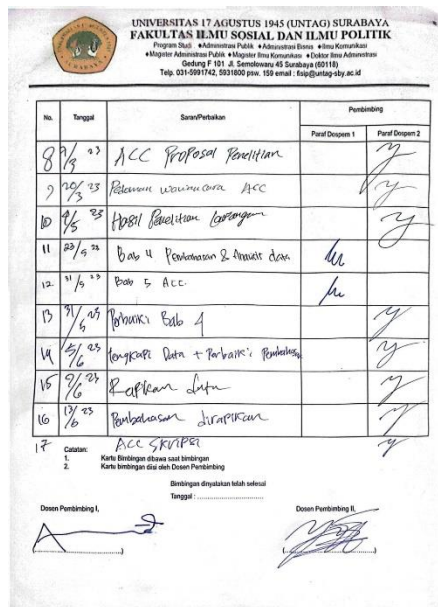 UNIVERSITAS 17 AGUSTUS 1945 (UNTAG) SURABAYA
FAKULTAS ILMU SOSIAL DAN ILMU POLITIK
Program Studi : •Administrasi Publik •Administrasi Bisnis •Ilmu Komunikasi
•Magister Administrasi Publik •Magister Ilmu Komunikasi •Doktor Ilmu Administrasi
Gedung F 101 Jl. Semolowaru 45 Surabaya (60118)
Telp. 031-5991742, 5931800 psw. 159 email : fisip@untag-sby.ac.id
No. Tanggal Saran/Perbaikan Pembimbing
Paraf Dospem 1 Paraf Dospem 2
8 /3 23 ACC Proposal Penelitian
9 20/3 23 Pedoman wawancara ACC
10 /5 23 Hasil Penelitian Lapangan
11 23/5 23 Bab 4 Pembahasan & Analisis data
12 31/5 23 Bab 5 ACC.
13 31/5 23 Perbaiki Bab 4
14 5/6 23 Lengkapi Data + Perbaiki Pembahasan
15 9/6 23 Rapikan data
16 13/6 23 Pembahasan dirapikan
17 ACC SKRIPSI
Catatan:
1. Kartu Bimbingan dibawa saat bimbingan
2. Kartu bimbingan diisi oleh Dosen Pembimbing
Bimbingan dinyatakan telah selesai
Tanggal :
Dosen Pembimbing I, Dosen Pembimbing II,